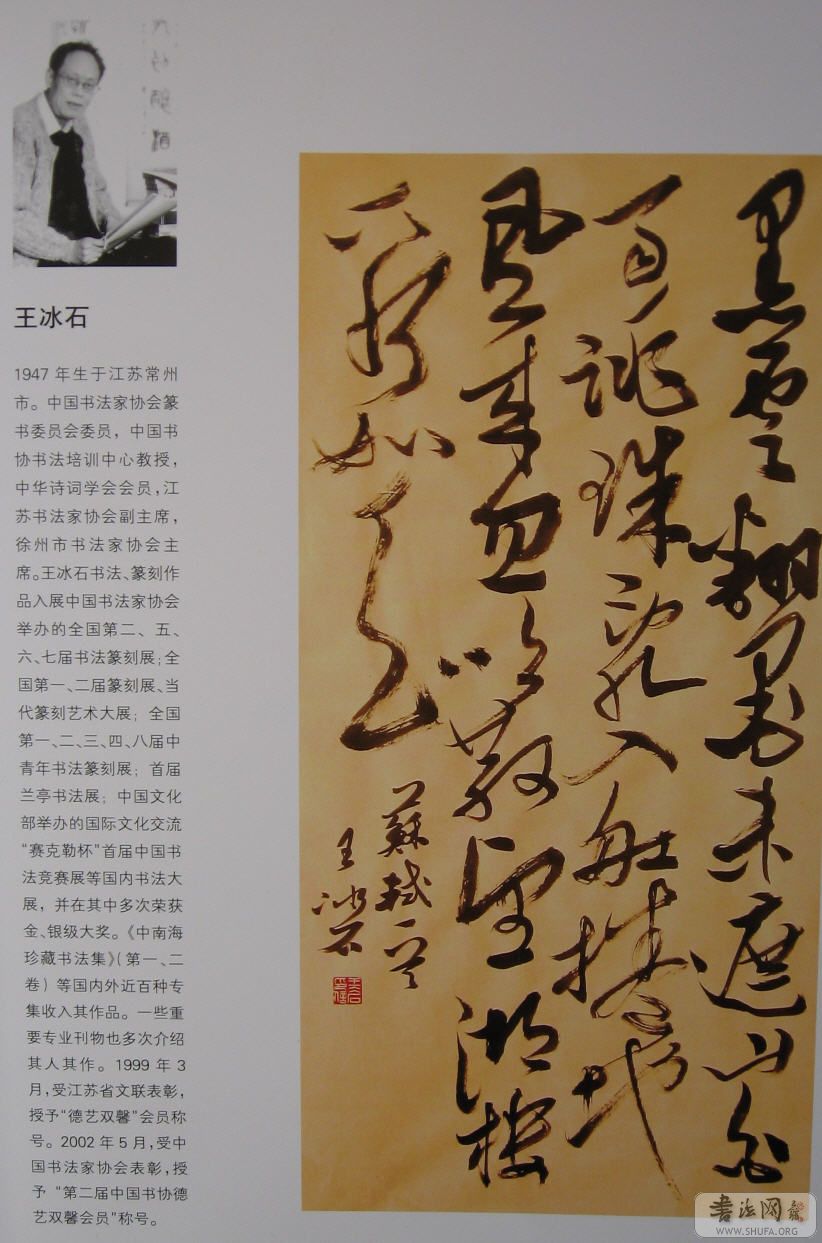 王冰石
1947 年生于江苏常州
市。中国书法家协会篆
书委员会委员，中国书
协书法培训中心教授，
中华诗词学会会员，江
苏书法家协会副主席，
徐州市书法家协会主
席。王冰石书法、篆刻作
品入展中国书法家协会
举办的全国第二、五、
六、七届书法篆刻展；全
国第一、二届篆刻展、当
代篆刻艺术大展；全国
第一、二、三、四、八届中
青年书法篆刻展；首届
兰亭书法展；中国文化
部举办的国际文化交流
“赛克勒杯”首届中国书
法竞赛展等国内书法大
展，并在其中多次荣获
金、银级大奖。《中南海
珍藏书法集》（第一、二
卷）等国内外近百种专
集收入其作品。一些重
要专业刊物也多次介绍
其人其作。1999 年 3
月，受江苏省文联表彰，
授予“德艺双馨”会员称
号。2002 年 5 月，受中
国书法家协会表彰，授
予 “第二届中国书协德
艺双馨会员”称号。
黑雲翻墨未遮山白
雨跳珠亂入船捲地
風來忽吹散望湖樓
下水如天
蘇軾
王冰石
書法网
WWW.SHUFA.ORG